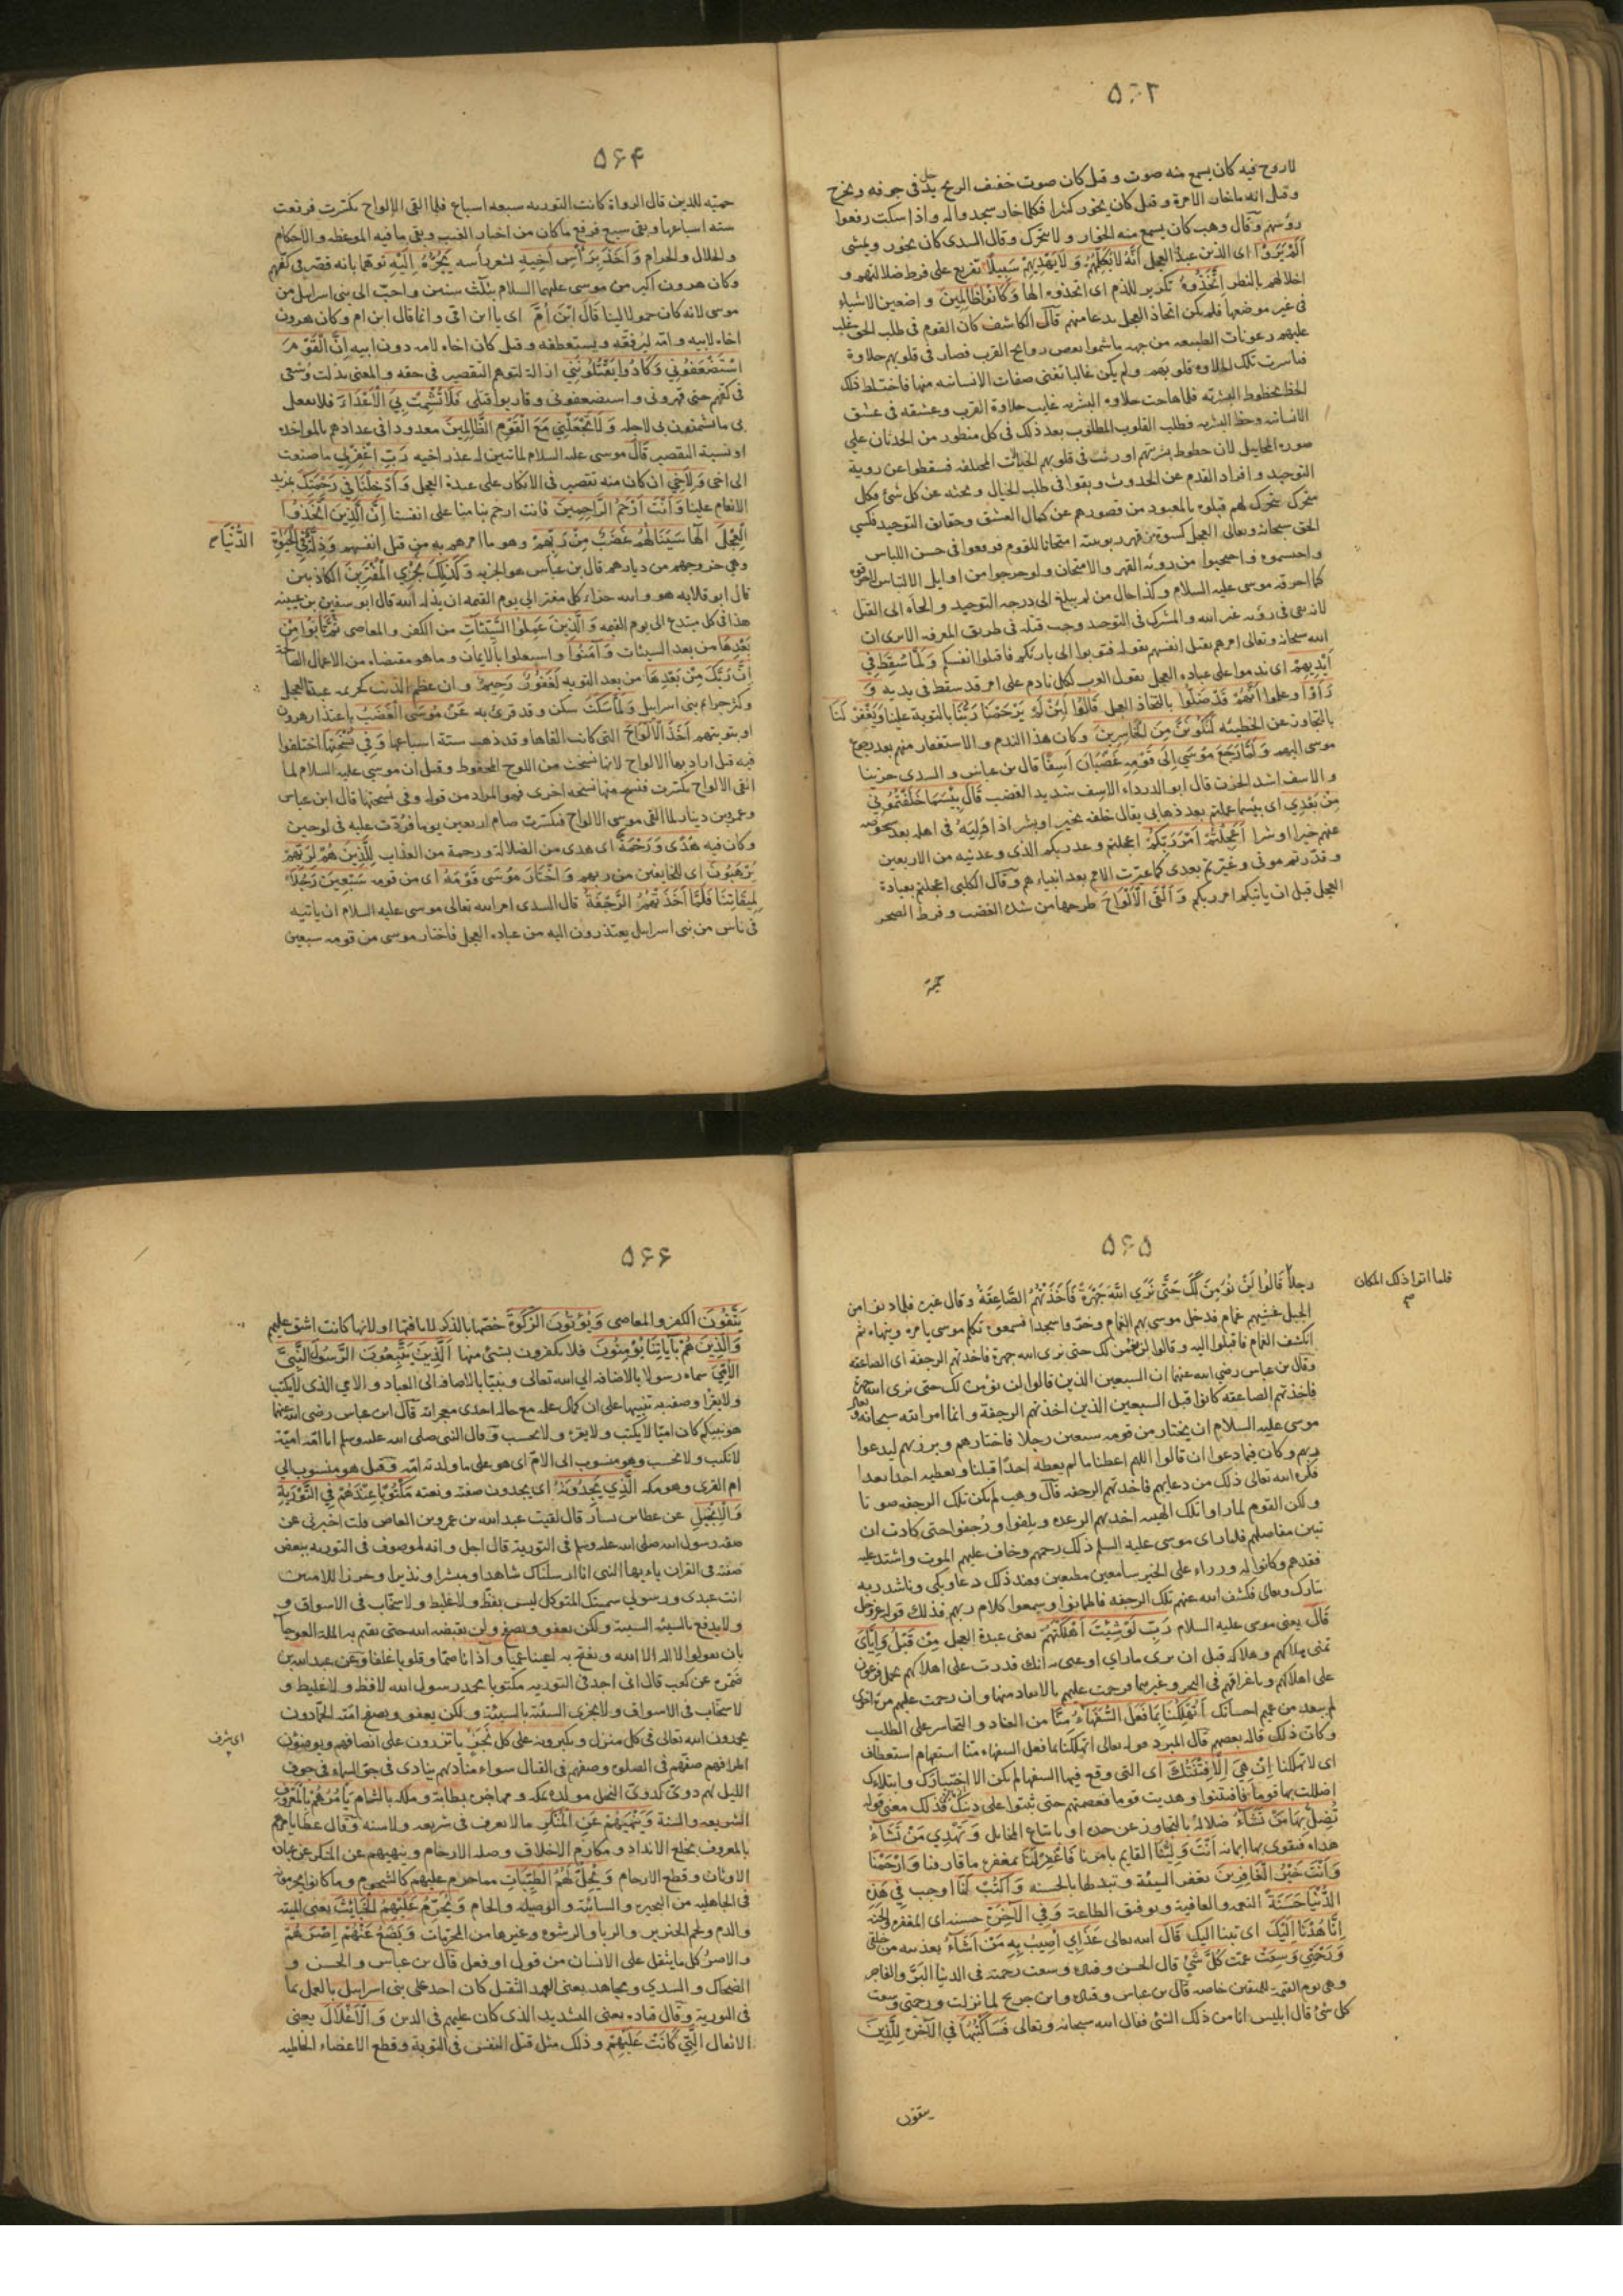 ٥٦٣
لا روح فيه كان يسمع منه صوت و قيل كان صوت خفيف الريح يدخل فى جوفه ويخرج
وقيل انه ما خار الا مرة و قيل كان يخور كثيرا فكلما خار سجدوا له و اذا سكت رفعوا
رؤسهم وقال وهب كان يسمع منه الخوار و لا يتحرك وقال السدى كان يخور ويمشى
اَلَمْ يَرَوْا اى الذين عبدوا العجل اَنَّهُ لَا يُكَلِّمُهُمْ وَ لَا يَهْدِيهِمْ سَبِيلًا تقريع على فرط ضلالتهم و
اخلالهم بالنظر اِتَّخَذُوهُ تكرير للذم اى اتخذوه الها وَكَانُوا ظَالِمِينَ واضعين الاشياء
فى غير موضعها فلم يكن اتخاذ العجل بدعا منهم قال الكاشف كان القوم فى طلب الحق غلب
عليهم رعونات الطبيعه من جهه ما شموا بعض روايح القرب فصار فى قلوبهم حلاوة
فباسرت تلك الحلاوه قلوبهم و لم يكن غالبا تفنى صفات الانسانيه منها فاختلط ذلك
الحظ بحظوظ البشريه فلما هاجت حلاوه البشريه غايب حلاوة القرب وعشقه فى عشق
الانسانيه وحظ البشريه فطلب القلوب المطلوب بعد ذلك فى كل منظور من الحدثان على
صورة المخاييل لان حظوظ بشريتهم اورثت فى قلوبهم الخيالات المختلفه فسقطوا عن روية
التوحيد و افراد القدم عن الحدوث وبقوا فى طلب الخيال و بحثه عن كل شئ فكل
متحرك يتحرك لهم قبلوه بالمعبود من قصورهم عن كمال العشق وحقايق التوحيد فكسى
الحق سبحانه وتعالى العجل كسوة من قهر ربوبيته امتحانا للقوم فوقعوا فى حسن اللباس
و احتجبوا من رؤيه القهر والامتحان ولو خرجوا من اوايل الالتباس لاحرقوه
كما احرقه موسى عليه السلام وكذا حال من لم يبلغ الى درجه التوحيد و الجأه الى القتل
لانه بقى فى رؤيه غير الله و الشرك فى التوحيد وجب قتله فى طريق المعرفه الا ترى ان
الله سبحانه وتعالى امرهم بقتل انفسهم بقوله فتوبوا الى بارئكم فاقتلوا انفسكم وَلَمَّا سُقِطَ فِي
اَيْدِيهِمْ اى ندموا على عباده العجل يقول العرب لكل نادم على امر قد سقط فى يديه وَ
رَاَوْا وعلموا اَنَّهُمْ قَدْ ضَلُّوا باتخاذ العجل قَالُوا لَئِنْ لَمْ يَرْحَمْنَا رَبُّنَا بالتوبة علينا وَيَغْفِرْ لَنَا
بالتجاوز عن الخطيئه لَنَكُونَنَّ مِنَ الْخَاسِرِينَ وكان هذا الندم و الاستغفار منهم بعد رجوع
موسى اليهم وَلَمَّا رَجَعَ مُوسَى اِلَى قَوْمِهِ غَضْبَانَ اَسِفًا قال بن عباس و السدى حزينا
و الاسف اشد الحزن قال ابو الدرداء الاسف شديد الغضب قَالَ بِئْسَمَا خَلَفْتُمُونِي
مِنْ بَعْدِي اى بئسما عملتم بعد ذهابى يقال خلفه بخير او بشر اذا اوليه فى اهله بعد شخوصه
عنهم خيرا او شرا اَعَجِلْتُمْ اَمْرَ رَبِّكُمْ اعجلتم وعد ربكم الذى وعدنيه من الاربعين
و قدرتم موتى وغيرتم بعدى كما غيرت الامم بعد انبيائهم وقال الكلبى اعجلتم بعبادة
العجل قبل ان ياتيكم امر ربكم وَ اَلْقَى الْاَلْوَاحَ طرحها من شدة الغضب و فرط الضجر
حميّة
٥٦٤
حميّه للدين قال الرواة كانت التوريه سبعه اسباع فلما القى الالواح تكسرت فرفعت
سته اسباعها وبقى سبع فرفع ما كان من اخبار الغيب وبقى ما فيه الموعظه و الاحكام
و الحلال و الحرام وَ اَخَذَ بِرَأْسِ اَخِيهِ بشعر رأسه يَجُرُّهُ اِلَيْهِ توهما بانه قصر فى كفهم
وكان هرون اكبر من موسى عليهما السلام بثلث سنين و احب الى بنى اسرائيل من
موسى لانه كان حمولا لينا قَالَ ابْنَ اُمَّ اى يا ابن امى و انما قال ابن ام وكان هرون
اخاه لابيه و امه ليرققه و يستعطفه و قيل كان اخاه لامه دون ابيه اِنَّ الْقَوْمَ
اسْتَضْعَفُونِي وَكَادُوا يَقْتُلُونَنِي ازالة لتوهم التقصير فى حقه و المعنى بذلت وسعى
فى كفهم حتى قهرونى و استضعفونى و قاربوا قتلى فَلَا تُشْمِتْ بِيَ الْاَعْدَاءَ فلا تفعل
بى ما يشمتون بى لاجله وَ لَا تَجْعَلْنِي مَعَ الْقَوْمِ الظَّالِمِينَ معدودا فى عدادهم بالمواخذه
او نسبة التقصير قَالَ موسى عليه السلام لما تبين له عذر اخيه رَبِّ اغْفِرْ لِي ما صنعت
الى اخى وَ لِاَخِي ان كان منه تقصير فى الانكار على عبدة العجل وَ اَدْخِلْنَا فِي رَحْمَتِكَ بمزيد
الانعام علينا وَ اَنْتَ اَرْحَمُ الرَّاحِمِينَ فانت ارحم بنا منا على انفسنا اِنَّ الَّذِينَ اتَّخَذُوا
الْعِجْلَ الها سَيَنَالُهُمْ غَضَبٌ مِنْ رَبِّهِمْ وهو ما امرهم به من قتل انفسهم وَذِلَّةٌ فِي الْحَيَوةِ
الدُّنْيَا
وهى خروجهم من ديارهم قال بن عباس هو الجزيه وَ كَذَلِكَ نَجْزِي الْمُفْتَرِينَ الكاذبين
قال ابو قلابه هو و الله جزاء كل مفتر الى يوم القيمه ان يذله الله قال ابو سفين بن عيينه
هذا فى كل مبتدع الى يوم القيمه وَ الَّذِينَ عَمِلُوا السَّيِّئَاتِ من الكفر و المعاصى ثُمَّ تَابُوا مِنْ
بَعْدِهَا من بعد السيئات وَ آمَنُوا و اشتغلوا بالايمان و ما هو مقتضاه من الاعمال الصالحة
اِنَّ رَبَّكَ مِنْ بَعْدِهَا من بعد التوبه لَغَفُورٌ رَحِيمٌ و ان عظم الذنب كجريمه عبدة العجل
وكثر جرائم بنى اسرايل وَ لَمَّا سَكَتَ سكن و قد قرئ به عَنْ مُوسَى الْغَضَبُ باعتذار هرون
او بتوبتهم اَخَذَ الْاَلْوَاحَ التى كانت القاها و قد ذهب ستة اسباعها وَ فِي نُسْخَتِهَا اختلفوا
فيه قيل اراد بها الالواح لانها نسخت من اللوح المحفوظ و قيل ان موسى عليه السلام لما
القى الالواح تكسرت فنسخ منها نسخه اخرى فهو المراد من قوله وفى نسختها قال ابن عباس
وعمرو بن دينار لما القى موسى الالواح فتكسرت صام اربعين يوما فردّت عليه فى لوحين
وكان فيه هُدًى وَ رَحْمَةٌ اى هدى من الضلالة و رحمة من العذاب لِلَّذِينَ هُمْ لِرَبِّهِمْ
يَرْهَبُونَ اى للخايفين من ربهم وَ اخْتَارَ مُوسَى قَوْمَهُ اى من قومه سَبْعِينَ رَجُلًا
لِمِيقَاتِنَا فَلَمَّا اَخَذَتْهُمُ الرَّجْفَةُ قال السدى امر الله تعالى موسى عليه السلام ان ياتيه
فى ناس من بنى اسرايل يعتذرون اليه من عباده العجل فاختار موسى من قومه سبعين
٥٦٥
فلما اتوا ذلك المكان
رجلا قَالُوا لَنْ نُؤْمِنَ لَكَ حَتَّى نَرَى اللَّهَ جَهْرَةً فَاَخَذَتْهُمُ الصَّاعِقَةُ و قال غيره فلما دنوا من
الجبل غشيهم غمام فدخل موسى بهم الغمام وخروا سجدا فسمعوه تكلم موسى يامره وينهاه ثم
انكشف الغمام فاقبلوا اليه و قالوا لن نؤمن لك حتى نرى الله جهرة فاخذتهم الرجفة اى الصاعقه
وقال بن عباس رضى الله عنهما ان السبعين الذين قالوا لن نؤمن لك حتى نرى الله جهرة
فاخذتهم الصاعقه كانوا قبل السبعين الذين اخذتهم الرجفة و انما امر الله سبحانه وتعالى
موسى عليه السلام ان يختار من قومه سبعين رجلا فاختارهم و برز بهم ليدعوا
ربهم وكان فيما دعوا ان قالوا اللهم اعطنا ما لم يعطه احدا قبلنا و يعطيه احدا بعدنا
فكره الله تعالى ذلك من دعائهم فاخذتهم الرجفه قال وهب لم يكن تلك الرجفه موتا
ولكن القوم لما راوا تلك الهيبه اخذتهم الرعده و رجفوا حتى كادت ان
تبين مفاصلهم فلما راى موسى عليه السلم ذلك رحمهم وخاف عليهم الموت واشتد عليه
فقدهم وكانوا له وزراء على الخير سامعين مطيعين فعند ذلك دعا وبكى و ناشد ربه
تبارك وتعالى فكشف الله عنهم تلك الرجفه فاطمانوا وسمعوا كلام ربهم فذلك قوله عز وجل
قَالَ يعنى موسى عليه السلام رَبِّ لَوْ شِئْتَ اَهْلَكْتَهُمْ يعنى عبدة العجل مِنْ قَبْلُ وَ اِيَّايَ
تمنى هلاكهم و هلاكه قبل ان يرى ما راى او عنى به انك قدرت على اهلاكهم بحمل فرعون
على اهلاكهم و باغراقهم فى البحر وغيرهما فرحمت عليهم بالانقاذ منها و ان رحمت عليهم مرة اخرى
لم يبعد من عميم احسانك اَتُهْلِكُنَا بِمَا فَعَلَ السُّفَهَاءُ مِنَّا من العناد و التجاسر على الطلب
وكان ذلك قاله بعضهم قال المبرد قوله تعالى اتهلكنا بما فعل السفهاء منا استفهام استعطاف
اى لا تهلكنا اِنْ هِيَ اِلَّا فِتْنَتُكَ اى التى وقع فيها السفهاء لم يكن الا اختبارك و ابتلاؤك
اضللت بها قوما فافتتنوا و هديت قوما فعصمتهم حتى ثبتوا على دينك فذلك معنى قوله
تُضِلُّ بِهَا مَنْ تَشَاءُ ضلاله بالتجاوز عن حده او باتباع المخايل وَ تَهْدِي مَنْ تَشَاءُ
هداه فيقوى بها ايمانه اَنْتَ وَلِيُّنَا القايم بامرنا فَاغْفِرْ لَنَا بمغفرة ما قارفنا وَ ارْحَمْنَا
وَ اَنْتَ خَيْرُ الْغَافِرِينَ تغفر السيئة و تبدلها بالحسنه وَ اكْتُبْ لَنَا اوجب فِي هَذِهِ
الدُّنْيَا حَسَنَةً النعمه و العافية وتوفيق الطاعة وَ فِي الْآخِرَةِ حسنه اى المغفره و الجنه
اِنَّا هُدْنَا اِلَيْكَ اى تبنا اليك قَالَ الله تعالى عَذَابِي اُصِيبُ بِهِ مَنْ اَشَاءُ تعذيبه من خلقى
وَ رَحْمَتِي وَسِعَتْ عمت كُلَّ شَيْءٍ قال الحسن و قتاده وسعت رحمته فى الدنيا البر و الفاجر
وهى يوم القيمة للمتقين خاصه قال بن عباس و قتاده وابن جريج لما نزلت و رحمتى وسعت
كل شئ قال ابليس انا من ذلك الشئ فقال الله سبحانه وتعالى فَسَاَكْتُبُهَا فى الاخره لِلَّذِينَ
يتقون
٥٦٦
يَتَّقُونَ الكفر و المعاصى وَ يُؤْتُونَ الزَّكَوةَ خصها بالذكر لانافتها او لانها كانت اشق عليهم
وَ الَّذِينَ هُمْ بِآيَاتِنَا يُؤْمِنُونَ فلا يكفرون بشئ منها اَلَّذِينَ يَتَّبِعُونَ الرَّسُولَ النَّبِيَّ
الْاُمِّيَّ سماه رسولا بالاضافه الى الله تعالى و نبيا بالاضافه الى العباد و الامى الذى لا يكتب
ولا يقرأ وصفه به تنبيها على ان كمال علمه مع حاله احدى معجزاته قال ابن عباس رضى الله عنهما
هو نبيكم كان اميا لا يكتب و لا يقرء و لا يحسب وقال النبى صلى الله عليه وسلم انا امة اميّة
لا نكتب و لا نحسب وهو منسوب الى الام اى هو على ما ولدته امه وقيل هو منسوب الى
ام القرى وهو مكه الَّذِي يَجِدُونَهُ اى يجدون صفته و نعته مَكْتُوبًا عِنْدَهُمْ فِي التَّوْرَيةِ
وَ الْاِنْجِيلِ عن عطا بن يسار قال لقيت عبد الله بن عمرو بن العاص قلت اخبرنى عن
صفه رسول الله صلى الله عليه وسلم فى التورية قال اجل و انه لموصوف فى التوريه ببعض
صفته فى القران يا ايها النبى انا ارسلناك شاهدا و مبشرا و نذيرا وحرزا للاميين
انت عبدى و رسولى سميتك المتوكل ليس بفظّ و لا غليظ و لا سخّاب فى الاسواق و
و لا يدفع بالسيئه السيئة ولكن يعفو و يصفح و لن يقبضه الله حتى يقيم به الملة العوجا
بان يقولوا لا اله الا الله و يفتح به اعينا عميا و آذانا صما و قلوبا غلفا وعن عبد الله بن
ضمره عن كعب قال انى اجد فى التوريه مكتوبا محمد رسول الله لا فظ و لا غليظ و
لا سخّاب فى الاسواق و لا يجزى السيئة بالسيئة و لكن يعفو و يصفح امته الحمّادون
يحمدون الله تعالى فى كل منزل و يكبرونه على كل نجد ياتزرون على انصافهم ويوضئون
اى شرف
اطرافهم صفهم فى الصلوة وصفهم فى القتال سواء مناديهم ينادى فى جو السماء فى جوف
الليل لهم دوىّ كدوىّ النحل مولده بمكه و مهاجره بطابة و ملكه بالشام يَأْمُرُهُمْ بِالْمَعْرُوفِ
الشريعه و السنة وَ يَنْهَيهُمْ عَنِ الْمُنْكَرِ ما لا يعرف فى شريعه و لا سنه وقال عطا يامرهم
بالمعروف بخلع الانداد و مكارم الاخلاق وصله الارحام و ينهيهم عن المنكر عن عبادة
الاوثان و قطع الارحام وَ يُحِلُّ لَهُمُ الطَّيِّبَاتِ مما حرم عليهم كالشحوم و ما كانوا يحرمونه
فى الجاهليه من البحيره و السائبة و الوصيله و الحام وَ يُحَرِّمُ عَلَيْهِمُ الْخَبَائِثَ يعنى الميتة
و الدم و لحم الخنزير و الربا و الرشوه وغيرها من المحرمات وَ يَضَعُ عَنْهُمْ اِصْرَهُمْ
و الاصر كل ما يثقل على الانسان من قول او فعل قال بن عباس و الحسن و
الضحاك و السدى و مجاهد يعنى العهد الثقيل كان اخذ على بنى اسرايل بالعمل بما
فى التورية وقال قتاده يعنى التشديد الذى كان عليهم فى الدين وَ الْاَغْلَالَ يعنى
الاثقال الَّتِي كَانَتْ عَلَيْهِمْ و ذلك مثل قتل النفس فى التوبة و قطع الاعضاء الخاطيه